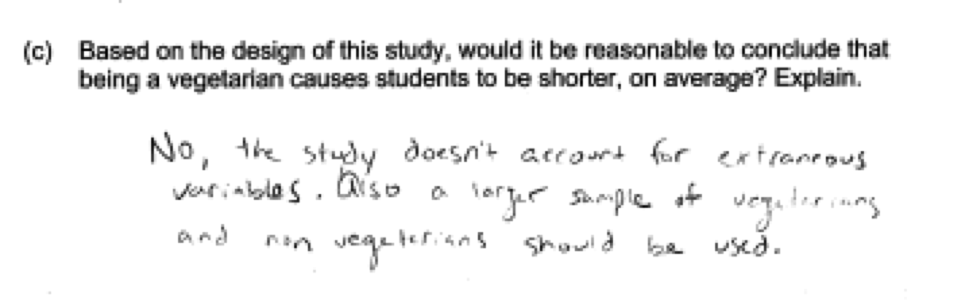 (c) Based on the design of this study, would it be reasonable to conclude that
being a vegetarian causes students to be shorter, on average? Explain.
No, the study doesn't account for extraneous
variables. Also a larger sample of vegeterians
and non vegeterians should be used.